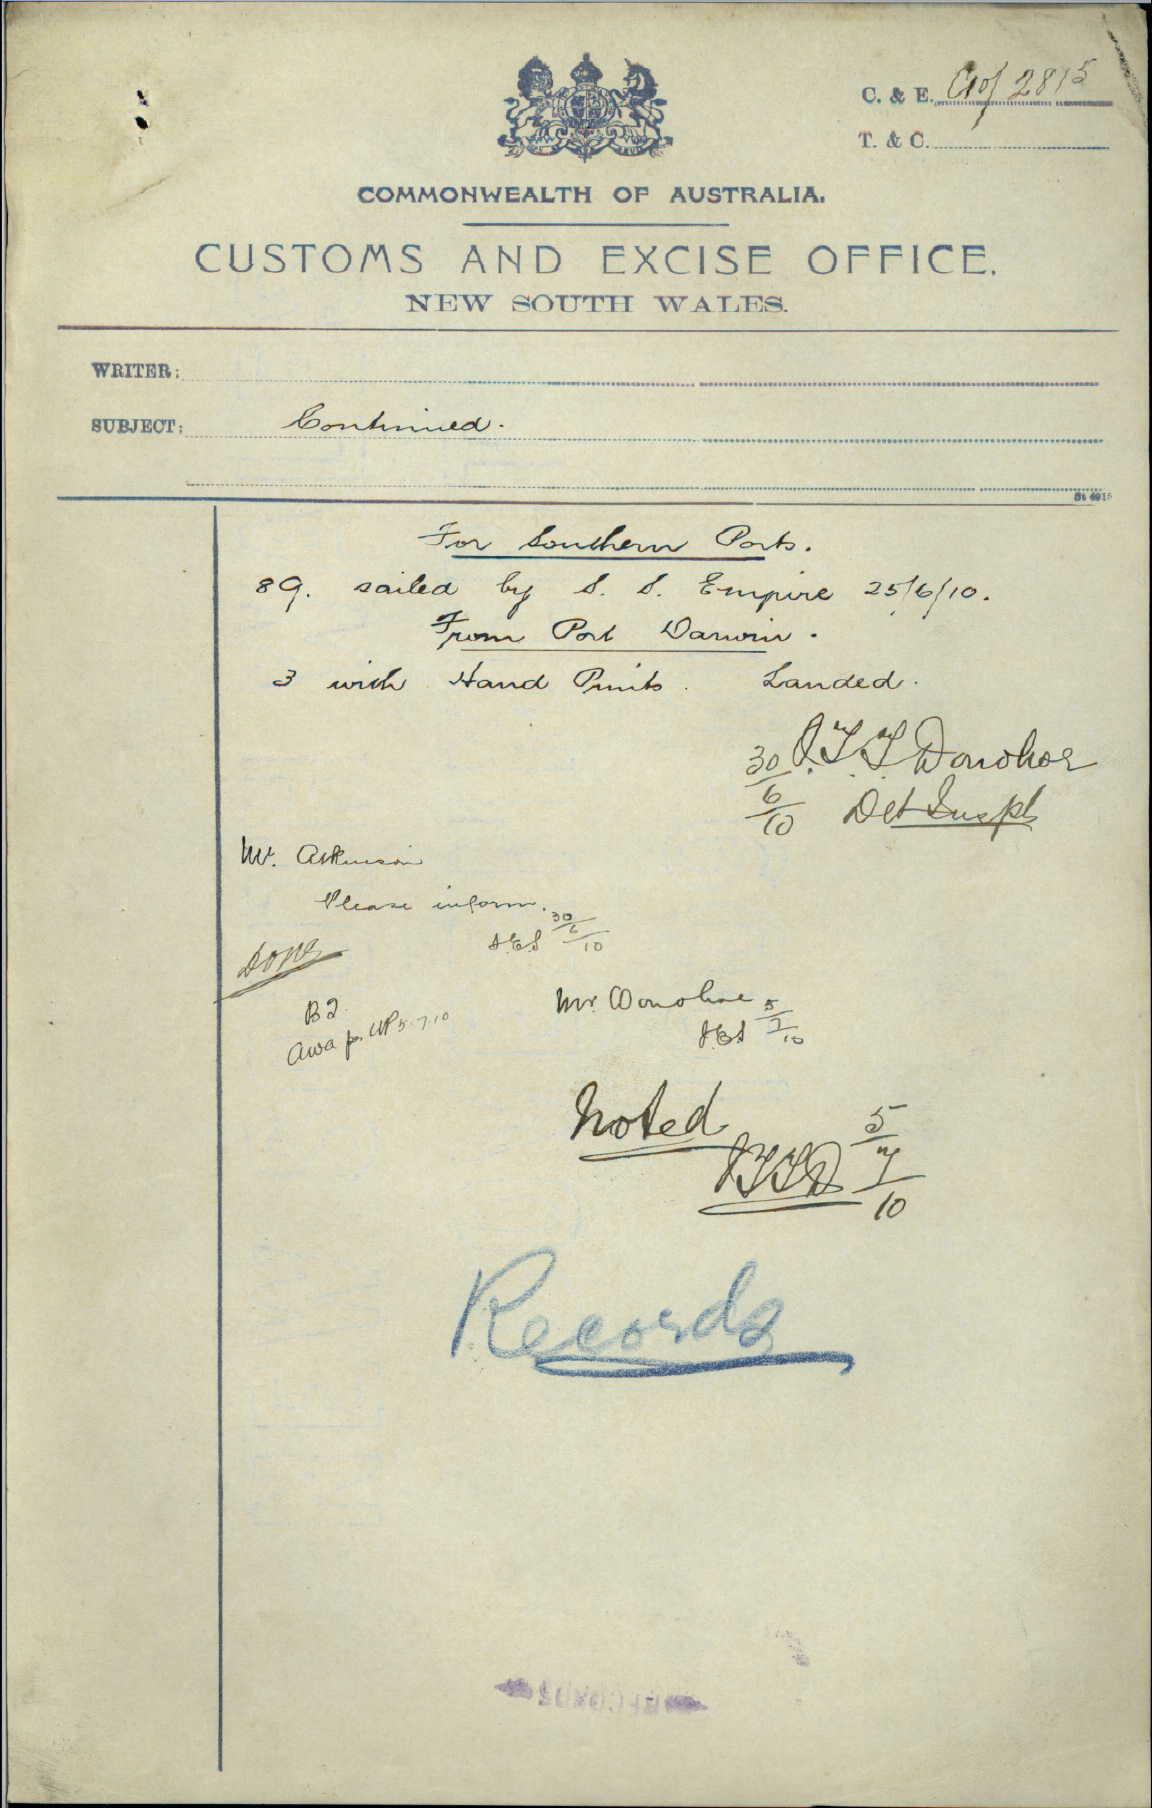 C. & E. 2815
T. & C.
COMMONWEALTH OF AUSTRALIA.
CUSTOMS AND EXCISE OFFICE.
NEW SOUTH WALES.
WRITER:
SUBJECT: Continued.
St 4915
For Southern Ports.
89. sailed by S. S. Empire 25/6/10.
From Port Darwin.
3 with Hand Prints. Landed.
J.T.T. Donohoe
30/6/10 Det Inspr
Mr. Atkinson
Please inform.
30/6/10
Done
Mr. Donohoe
5/7/10
B2.
5.7.10
Noted
JTTD 5/7/10
Records
RECORDS